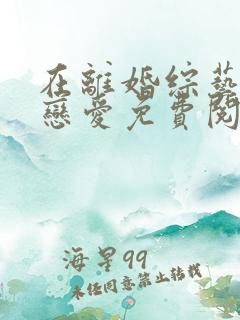 在離婚綜藝
戀愛免費閱
海星99
未任同意禁止转载